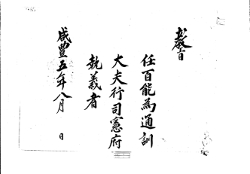 敎旨
任百能為通訓
大夫行司憲府
執義者
咸豐五年八月　日